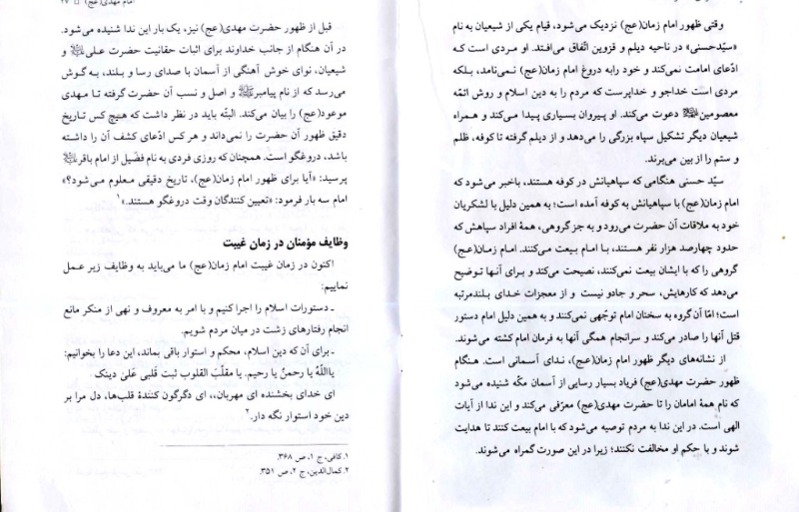 وقتی ظهور امام زمان(عج) نزدیک می‌شود، قیام یکی از شیعیان به نام
«سیّدحسنی» در ناحیه دیلم و قزوین اتّفاق می‌افتد. او مردی است که
ادّعای امامت نمی‌کند و خود رابه دروغ امام زمان(عج) نمی‌نامد، بلکه
مردی است خداجو و خداپرست که مردم را به دین اسلام و روش ائمّه
معصومین دعوت می‌کند. او پیروان بسیاری پیدا می‌کند و همراه
شیعیان دیگر تشکیل سپاه بزرگی را می‌دهد و از دیلم گرفته تا کوفه، ظلم
و ستم را از بین می‌برند.
سیّد حسنی هنگامی که سپاهیانش در کوفه هستند، باخبر می‌شود که
امام زمان(عج) با سپاهیانش به کوفه آمده است؛ به همین دلیل با لشکریان
خود به ملاقات آن حضرت می‌رود و به جز گروهی، همۀ افراد سپاهش که
حدود چهارصد هزار نفر هستند، با امام بیعت می‌کنند. امام زمان(عج)
گروهی را که با ایشان بیعت نمی‌کنند، نصیحت می‌کند و برای آنها توضیح
می‌دهد که کارهایش، سحر و جادو نیست و از معجزات خدای بلندمرتبه
است؛ امّا آن گروه به سخنان امام توجّهی نمی‌کنند و به همین دلیل امام دستور
قتل آنها را صادر می‌کند و سرانجام همگی آنها به فرمان امام کشته می‌شوند.
از نشانه‌های دیگر ظهور امام زمان(عج)، ندای آسمانی است. هنگام
ظهور حضرت مهدی(عج) فریاد بسیار رسایی از آسمان مکّه شنیده می‌شود
که نام همۀ امامان را تا حضرت مهدی(عج) معرّفی می‌کند و این ندا از آیات
الهی است. در این ندا به مردم توصیه می‌شود که با امام بیعت کنند تا هدایت
شوند و با حکم او مخالفت نکنند؛ زیرا در این صورت گمراه می‌شوند.
امام مهدی(عج) □ ۲۷
قبل از ظهور حضرت مهدی(عج) نیز، یک بار این ندا شنیده می‌شود.
در آن هنگام از جانب خداوند برای اثبات حقانیت حضرت علی و
شیعیان، نوای خوش آهنگی از آسمان با صدای رسا و بلند، به گوش
می‌رسد که از نام پیامبر و اصل و نسب آن حضرت گرفته تا مهدی
موعود(عج) را بیان می‌کند. البتّه باید در نظر داشت که هیچ کس تاریخ
دقیق ظهور آن حضرت را نمی‌داند و هر کس ادّعای کشف آن را داشته
باشد، دروغگو است. همچنان که روزی فردی به نام فضّیل از امام باقر
پرسید: «آیا برای ظهور امام زمان(عج)، تاریخ دقیقی معلوم می‌شود؟»
امام سه بار فرمود: «تعیین کنندگان وقت دروغگو هستند.»۱
وظایف مؤمنان در زمان غیبت
اکنون در زمان غیبت امام زمان(عج) ما می‌باید به وظایف زیر عمل
نماییم:
ـ دستورات اسلام را اجرا کنیم و با امر به معروف و نهی از منکر مانع
انجام رفتارهای زشت در میان مردم شویم.
ـ برای آن که دین اسلام، محکم و استوار باقی بماند، این دعا را بخوانیم:
یااللّهُ یا رحمنُ یا رحیم. یا مقلّبَ القلوب ثبت قلبی عَلیٰ دینک
ای خدای بخشنده ای مهربان،، ای دگرگون کنندۀ قلب‌ها، دل مرا بر
دین خود استوار نگه دار.۲
۱. کافی، ج ۱، ص ۳۶۸.
۲. کمال‌الدین، ج ۲، ص ۳۵۱.